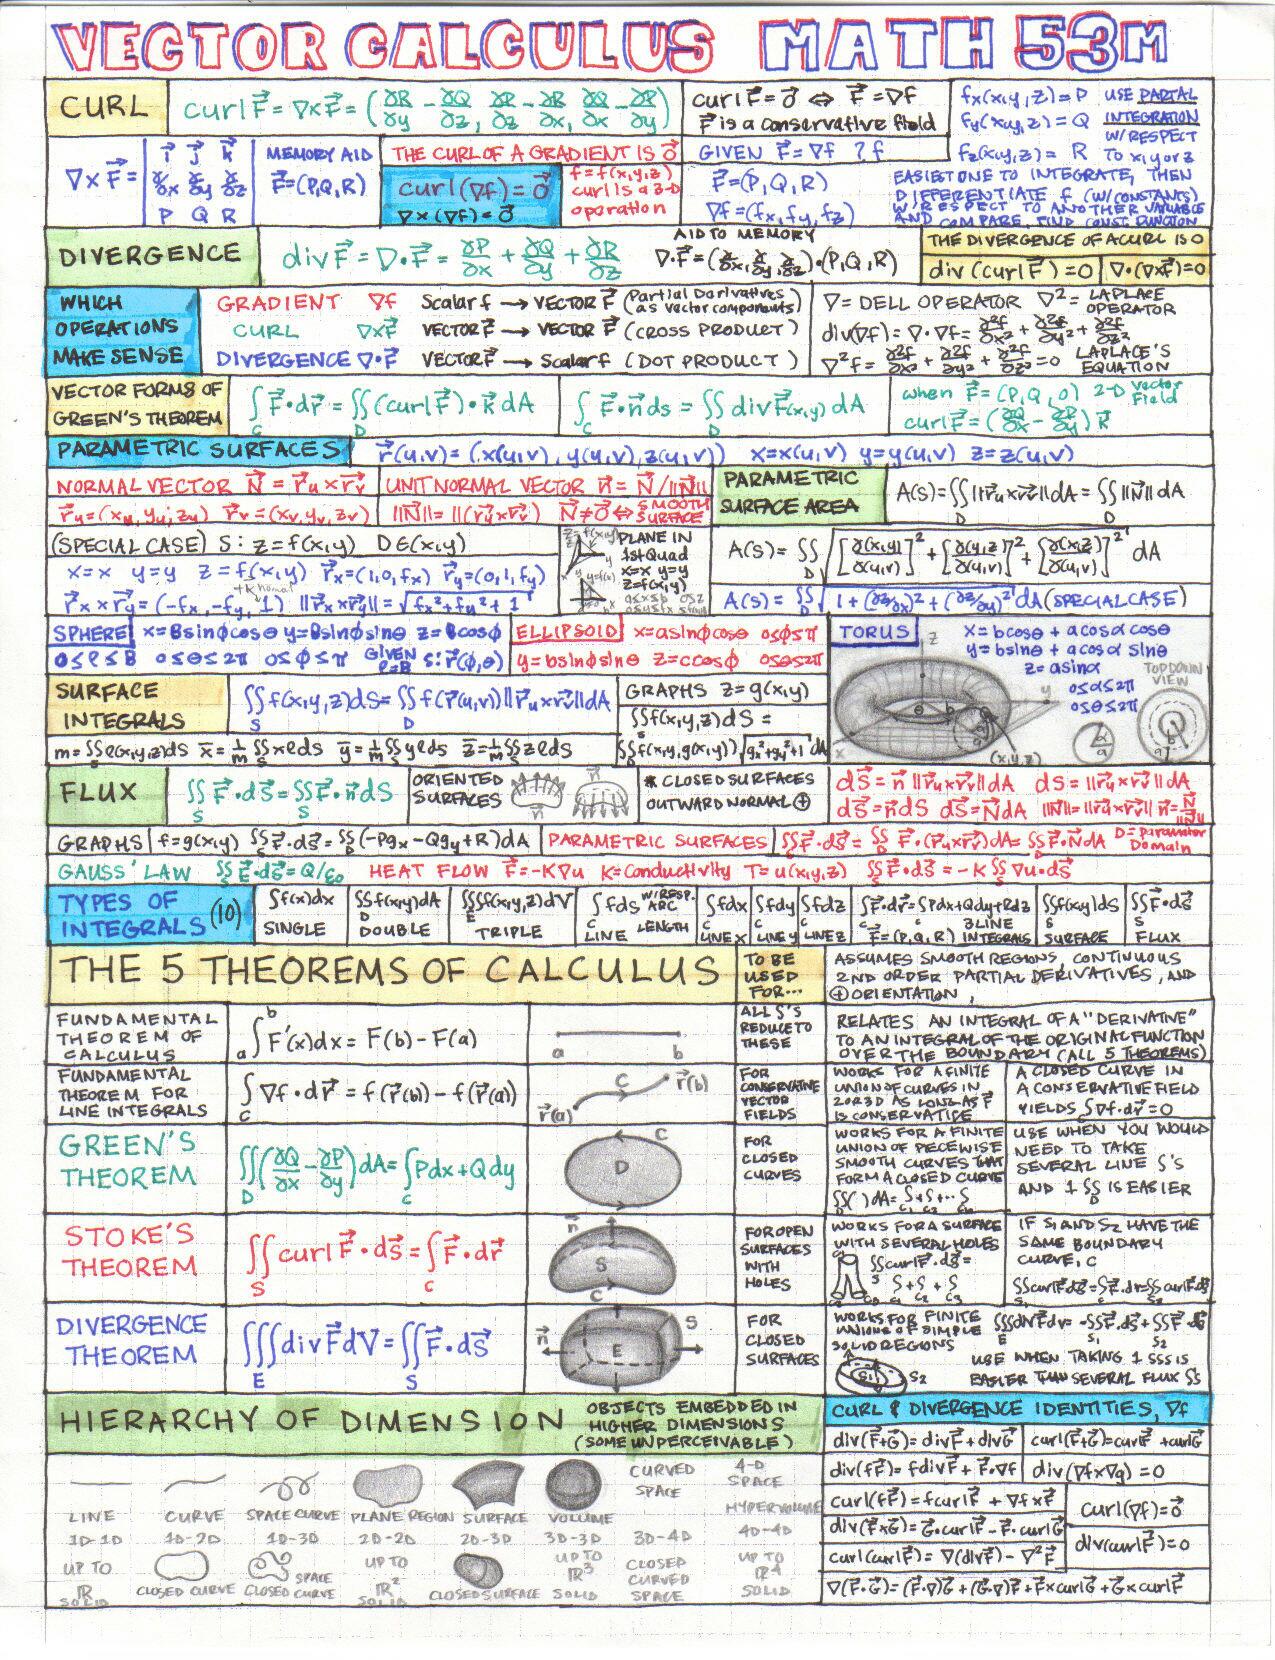 VECTOR CALCULUS MATH 53M
CURL curl F⃗ = ∇×F⃗ = (∂R/∂y - ∂Q/∂z, ∂P/∂z - ∂R/∂x, ∂Q/∂x - ∂P/∂y)
curl F⃗ = 0⃗ ⇔ F⃗ = ∇f
F⃗ is a conservative field
fx(x,y,z) = P USE PARTIAL
fy(x,y,z) = Q INTEGRATION
W/ RESPECT
fz(x,y,z) = R TO x,y or z
∇×F⃗ = | i⃗ j⃗ k⃗ |
| ∂/∂x ∂/∂y ∂/∂z |
| P Q R |
MEMORY AID
F⃗ = (P,Q,R)
THE CURL OF A GRADIENT IS 0⃗
curl(∇f) = 0⃗
∇×(∇f) = 0⃗
f = f(x,y,z)
curl is a 3-D
oporation
GIVEN F⃗ = ∇f ? f
F⃗ = (P,Q,R)
∇f = (fx, fy, fz)
EASIEST ONE TO INTEGRATE, THEN
DIFFERENTIATE f (W/CONSTANTS)
W/RESPECT TO ANOTHER VARIABLE
AND COMPARE. FIND CONST. FUNCTION
DIVERGENCE div F⃗ = ∇·F⃗ = ∂P/∂x + ∂Q/∂y + ∂R/∂z
AID TO MEMORY
∇·F⃗ = (∂/∂x, ∂/∂y, ∂/∂z)·(P,Q,R)
THE DIVERGENCE OF A CURL IS 0
div(curl F⃗) = 0 ∇·(∇×F⃗) = 0
WHICH
OPERATIONS
MAKE SENSE
GRADIENT ∇f Scalar f → VECTOR F⃗ (Partial Derivatives as vector components)
CURL ∇×F⃗ VECTOR F⃗ → VECTOR F⃗ (CROSS PRODUCT)
DIVERGENCE ∇·F⃗ VECTOR F⃗ → Scalar f (DOT PRODUCT)
∇ = DELL OPERATOR ∇² = LAPLACE OPERATOR
div(∇f) = ∇·∇f = ∂²f/∂x² + ∂²f/∂y² + ∂²f/∂z²
∇²f = ∂²f/∂x² + ∂²f/∂y² + ∂²f/∂z² = 0 LAPLACE'S EQUATION
VECTOR FORMS OF
GREEN'S THEOREM
∫C F⃗·dr⃗ = ∬D (curl F⃗)·k⃗ dA
∫C F⃗·n⃗ ds = ∬D div F⃗(x,y) dA
when F⃗ = (P,Q,0) 2-D Vector Field
curl F⃗ = (∂Q/∂x - ∂P/∂y) k⃗
PARAMETRIC SURFACES r⃗(u,v) = (x(u,v), y(u,v), z(u,v)) x=x(u,v) y=y(u,v) z=z(u,v)
NORMAL VECTOR N⃗ = r⃗u×r⃗v UNIT NORMAL VECTOR n⃗ = N⃗/||N⃗||
r⃗u = (xu, yu, zu) r⃗v = (xv, yv, zv) ||N⃗|| = ||(r⃗u×r⃗v)|| N⃗≠0⃗ ⇔ SMOOTH SURFACE
PARAMETRIC
SURFACE AREA
A(S) = ∬D ||r⃗u×r⃗v|| dA = ∬D ||N⃗|| dA
(SPECIAL CASE) S: z = f(x,y) D∈(x,y)
x=x y=y z=f(x,y) r⃗x=(1,0,fx) r⃗y=(0,1,fy)
+k normal
r⃗x × r⃗y = (-fx, -fy, 1) ||r⃗x×r⃗y|| = √(fx²+fy²+1)
PLANE IN
1st Quad
x=x y=y
z=f(x,y)
A(S) = ∬D √([∂(x,y)/∂(u,v)]² + [∂(y,z)/∂(u,v)]² + [∂(x,z)/∂(u,v)]²) dA
A(S) = ∬D √(1 + (∂z/∂x)² + (∂z/∂y)²) dA (SPECIAL CASE)
SPHERE x=Bsinφcosθ y=Bsinφsinθ z=Bcosφ
0≤ρ≤B 0≤θ≤2π 0≤φ≤π GIVEN ρ=B S: r⃗(φ,θ)
ELLIPSOID x=asinφcosθ 0≤φ≤π
y=bsinφsinθ z=ccosφ 0≤θ≤2π
TORUS x=bcosθ + acosαcosθ
y=bsinθ + acosα sinθ
z=asinα
0≤α≤2π
0≤θ≤2π
TOP DOWN
VIEW
z
y
θ b
x
(x,y,z)
SURFACE
INTEGRALS
∬S f(x,y,z)dS = ∬D f(r⃗(u,v))||r⃗u×r⃗v||dA
GRAPHS z=g(x,y)
∬S f(x,y,z)dS =
∬D f(x,y,g(x,y))√(gx²+gy²+1) dA
m=∬S ρ(x,y,z)dS x̄=1/m ∬S xρdS ȳ=1/m ∬S yρdS z̄=1/m ∬S zρdS
FLUX ∬S F⃗·dS⃗ = ∬S F⃗·n⃗ dS
ORIENTED
SURFACES
n⃗
n⃗
* CLOSED SURFACES
OUTWARD NORMAL ⊕
dS⃗ = n⃗ ||r⃗u×r⃗v||dA dS = ||r⃗u×r⃗v||dA
dS⃗ = n⃗dS dS⃗ = N⃗dA ||N⃗|| = ||r⃗u×r⃗v|| n⃗ = N⃗/||N⃗||
GRAPHS f=g(x,y) ∬S F⃗·dS⃗ = ∬D (-Pgx - Qgy + R)dA
PARAMETRIC SURFACES ∬S F⃗·dS⃗ = ∬D F⃗·(r⃗u×r⃗v)dA = ∬D F⃗·N⃗dA D=parameter Domain
GAUSS' LAW ∬S E⃗·dS⃗ = Q/ε0 HEAT FLOW F⃗=-K∇u K=Conductivity T=u(x,y,z) ∬S F⃗·dS⃗ = -K∬S ∇u·dS⃗
TYPES OF
INTEGRALS (10)
∫f(x)dx SINGLE
∬D f(x,y)dA DOUBLE
∭E f(x,y,z)dV TRIPLE
∫C fds W/RESP. ARC LENGTH LINE
∫C fdx LINE X
∫C fdy LINE Y
∫C fdz LINE Z
∫C F⃗·dr⃗ = ∫Pdx+Qdy+Rdz
F⃗=(P,Q,R) 3 LINE INTEGRALS
∬S f(x,y)dS SURFACE
∬S F⃗·dS⃗ FLUX
THE 5 THEOREMS OF CALCULUS
TO BE
USED
FOR...
ASSUMES SMOOTH REGIONS, CONTINUOUS
2ND ORDER PARTIAL DERIVATIVES, AND
⊕ ORIENTATION,
FUNDAMENTAL
THEOREM OF
CALCULUS
a∫b F'(x)dx = F(b) - F(a)
a b
ALL ∫'S
REDUCE TO
THESE
RELATES AN INTEGRAL OF A "DERIVATIVE"
TO AN INTEGRAL OF THE ORIGINAL FUNCTION
OVER THE BOUNDARY (ALL 5 THEOREMS)
FUNDAMENTAL
THEOREM FOR
LINE INTEGRALS
∫C ∇f·dr⃗ = f(r⃗(b)) - f(r⃗(a))
C r⃗(b)
r⃗(a)
FOR
CONSERVATIVE
VECTOR
FIELDS
WORKS FOR A FINITE
UNION OF CURVES IN
2 OR 3D AS LONG AS F⃗
IS CONSERVATIVE
A CLOSED CURVE IN
A CONSERVATIVE FIELD
YIELDS ∫∇f·dr⃗=0
GREEN'S
THEOREM
∬D (∂Q/∂x - ∂P/∂y)dA = ∫C Pdx+Qdy
C
D
FOR
CLOSED
CURVES
WORKS FOR A FINITE
UNION OF PIECEWISE
SMOOTH CURVES THAT
FORM A CLOSED CURVE
∬D ( )dA = ∫C1 + ∫C2 + ... ∫
USE WHEN YOU WOULD
NEED TO TAKE
SEVERAL LINE ∫'S
AND 1 ∬D IS EASIER
STOKE'S
THEOREM
∬S curl F⃗·dS⃗ = ∫C F⃗·dr⃗
n⃗
S
C
FOR OPEN
SURFACES
WITH
HOLES
WORKS FOR A SURFACE
WITH SEVERAL HOLES
∬S curl F⃗·dS⃗ =
∫C1 + ∫C2 + ∫C3
IF S1 AND S2 HAVE THE
SAME BOUNDARY
CURVE, C
∬S1 curl F⃗·dS⃗ = ∫C F⃗·dr⃗ = ∬S2 curl F⃗·dS⃗
DIVERGENCE
THEOREM
∭E div F⃗ dV = ∬S F⃗·dS⃗
n⃗ E S
FOR
CLOSED
SURFACES
WORKS FOR FINITE
UNIONS OF SIMPLE
SOLID REGIONS
S1 S2
∭E div F⃗ dv = -∬S1 F⃗·dS⃗ + ∬S2 F⃗·dS⃗
USE WHEN TAKING 1 ∭ IS
EASIER THAN SEVERAL FLUX ∬'S
HIERARCHY OF DIMENSION
OBJECTS EMBEDDED IN
HIGHER DIMENSIONS
(SOME UNPERCEIVABLE)
LINE CURVE SPACE CURVE PLANE REGION SURFACE VOLUME CURVED SPACE 4-D SPACE HYPERVOLUME
1D-1D 1D-2D 1D-3D 2D-2D 2D-3D 3D-3D 3D-4D 4D-4D
UP TO ℝ SOLID
CLOSED CURVE
CLOSED SPACE CURVE
UP TO ℝ² SOLID
CLOSED SURFACE
UP TO ℝ³ SOLID
CLOSED CURVED SPACE
UP TO ℝ⁴ SOLID
CURL & DIVERGENCE IDENTITIES, ∇f
div(F⃗+G⃗)=div F⃗+div G⃗ curl(F⃗+G⃗)=curl F⃗ + curl G⃗
div(fF⃗)=f div F⃗ + F⃗·∇f div(∇f×∇g)=0
curl(fF⃗)=f curl F⃗ + ∇f×F⃗ curl(∇f)=0⃗
div(F⃗×G⃗)=G⃗·curl F⃗ - F⃗·curl G⃗ div(curl F⃗)=0
curl(curl F⃗)=∇(div F⃗) - ∇²F⃗
∇(F⃗·G⃗)=(F⃗·∇)G⃗ + (G⃗·∇)F⃗ + F⃗×curl G⃗ + G⃗×curl F⃗